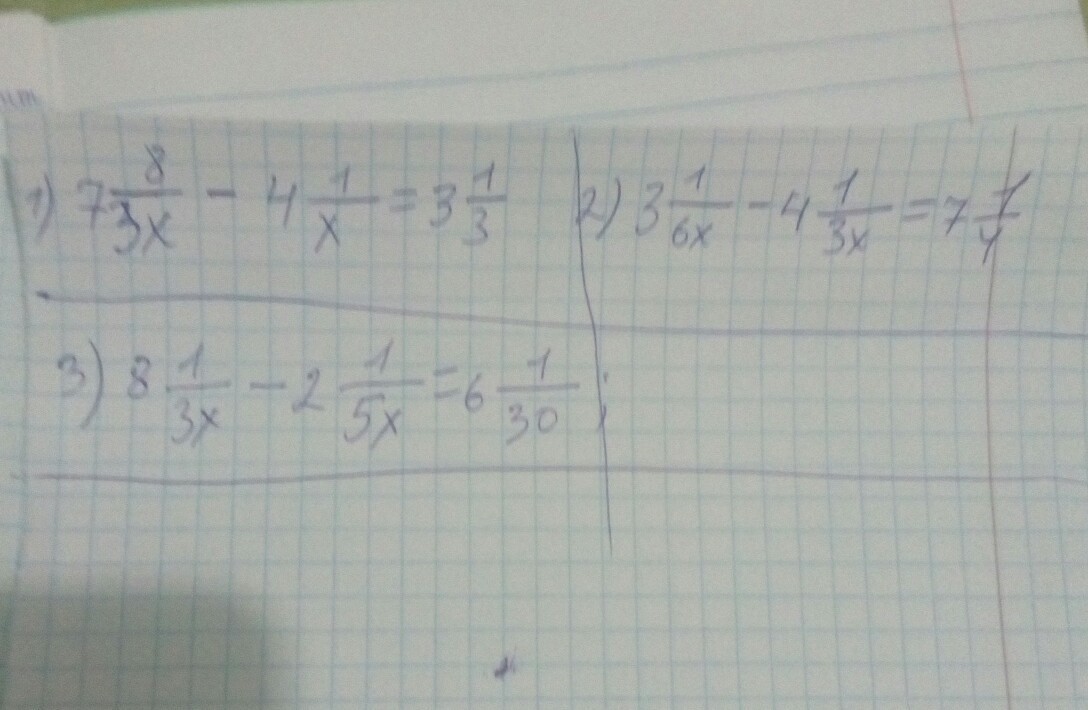 1) 7 8/3x - 4 1/x = 3 1/3
2) 3 1/6x - 4 1/3x = 7 1/4
3) 8 1/3x - 2 1/5x = 6 1/30 ;